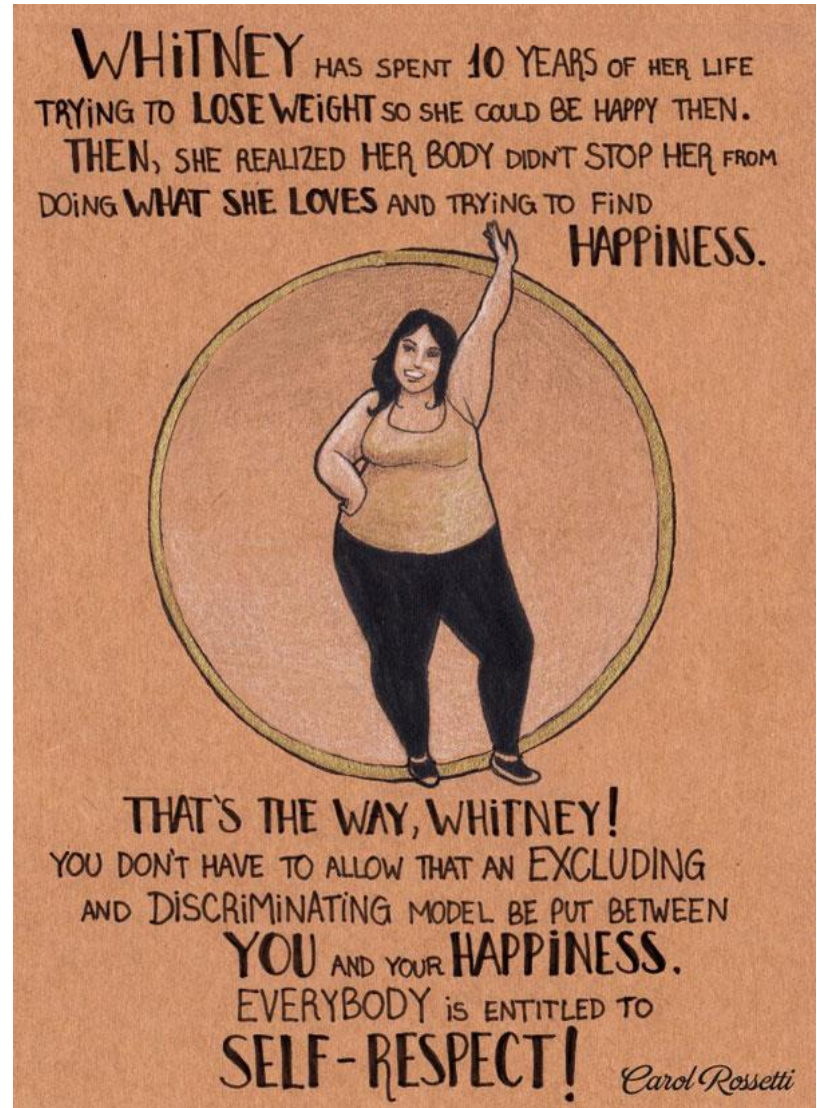 WHiTNEY HAS SPENT 10 YEARS OF HER LIFE
TRYiNG TO LOSE WEiGHT SO SHE COULD BE HAPPY THEN.
THEN, SHE REALIZED HER BODY DIDN'T STOP HER FROM
DOiNG WHAT SHE LOVES AND TRYiNG TO FiND
HAPPiNESS.
THAT'S THE WAY, WHiTNEY!
YOU DON'T HAVE TO ALLOW THAT AN EXCLUDiNG
AND DiSCRiMiNATiNG MODEL BE PUT BETWEEN
YOU AND YOUR HAPPiNESS.
EVERYBODY iS ENTITLED TO
SELF-RESPECT!
Carol Rossetti